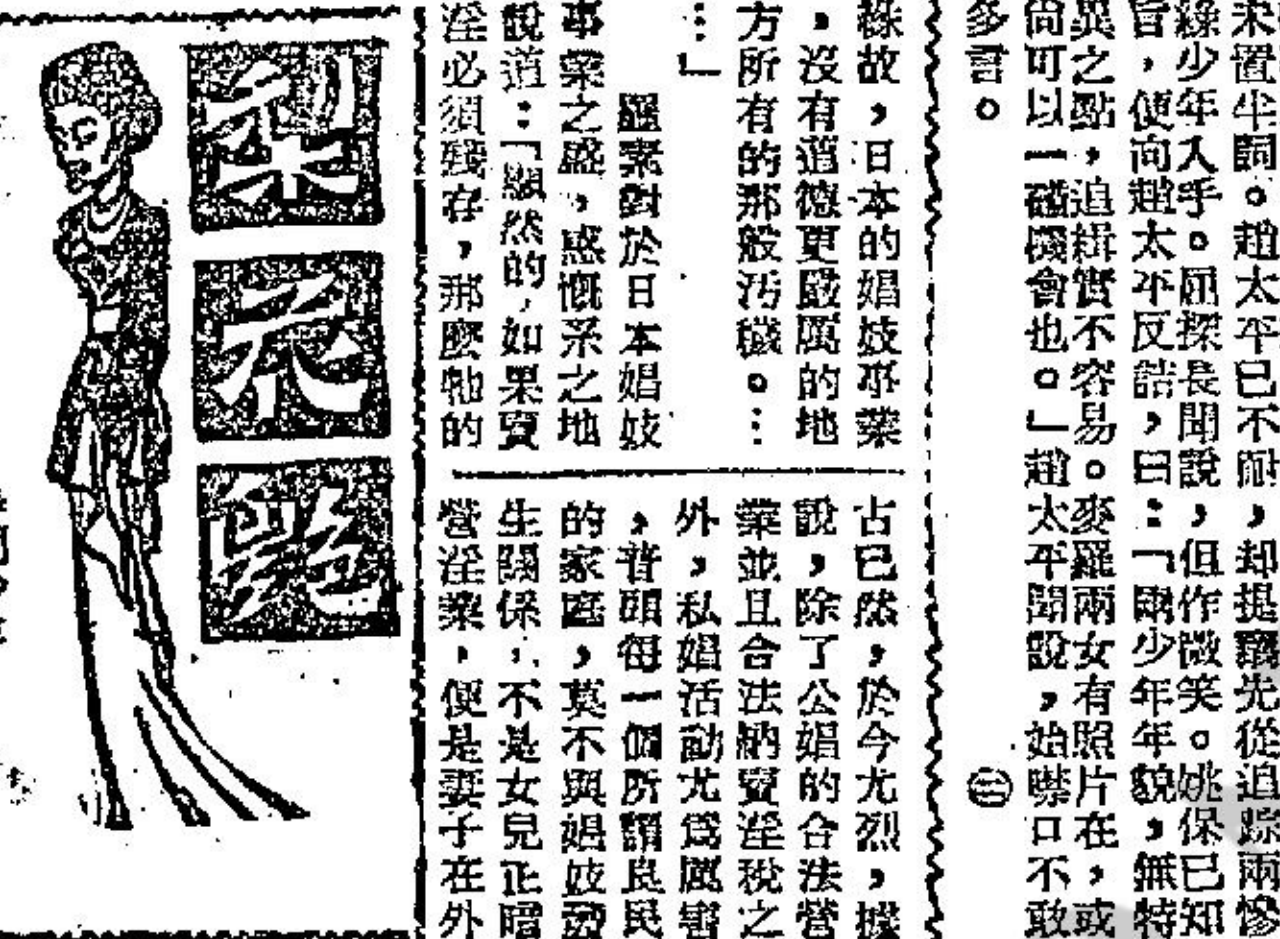 未置半詞。趙太平已不耐,却提先從追踪兩慘
綠少年入手。屈探長聞說,但作微笑。姚保已知
旨,便向趙太平反詰,曰:「兩少年年貌,無特
異之點,追緝實不容易。麥羅兩女有照片在,或
尚可以一碰機會也。」趙太平聞說,始噤口不敢
多言。 ㊂
緣故,日本的娼妓事業
,沒有道德更嚴厲的地
方所有的那般汚穢。…
…」
羅素對於日本娼妓
事業之盛,感慨系之地
說道:「顯然的,如果賣
淫必須殘存,那麼牠的
古已然,於今尤烈,據
說,除了公娼的合法營
業並且合法納賣淫稅之
外,私娼活動尤爲厲害
,昔頭每一個所謂良民
的家庭,莫不與娼妓發
生關係,不是女兒正暗
營淫業,便是妻子在外
梨
艷